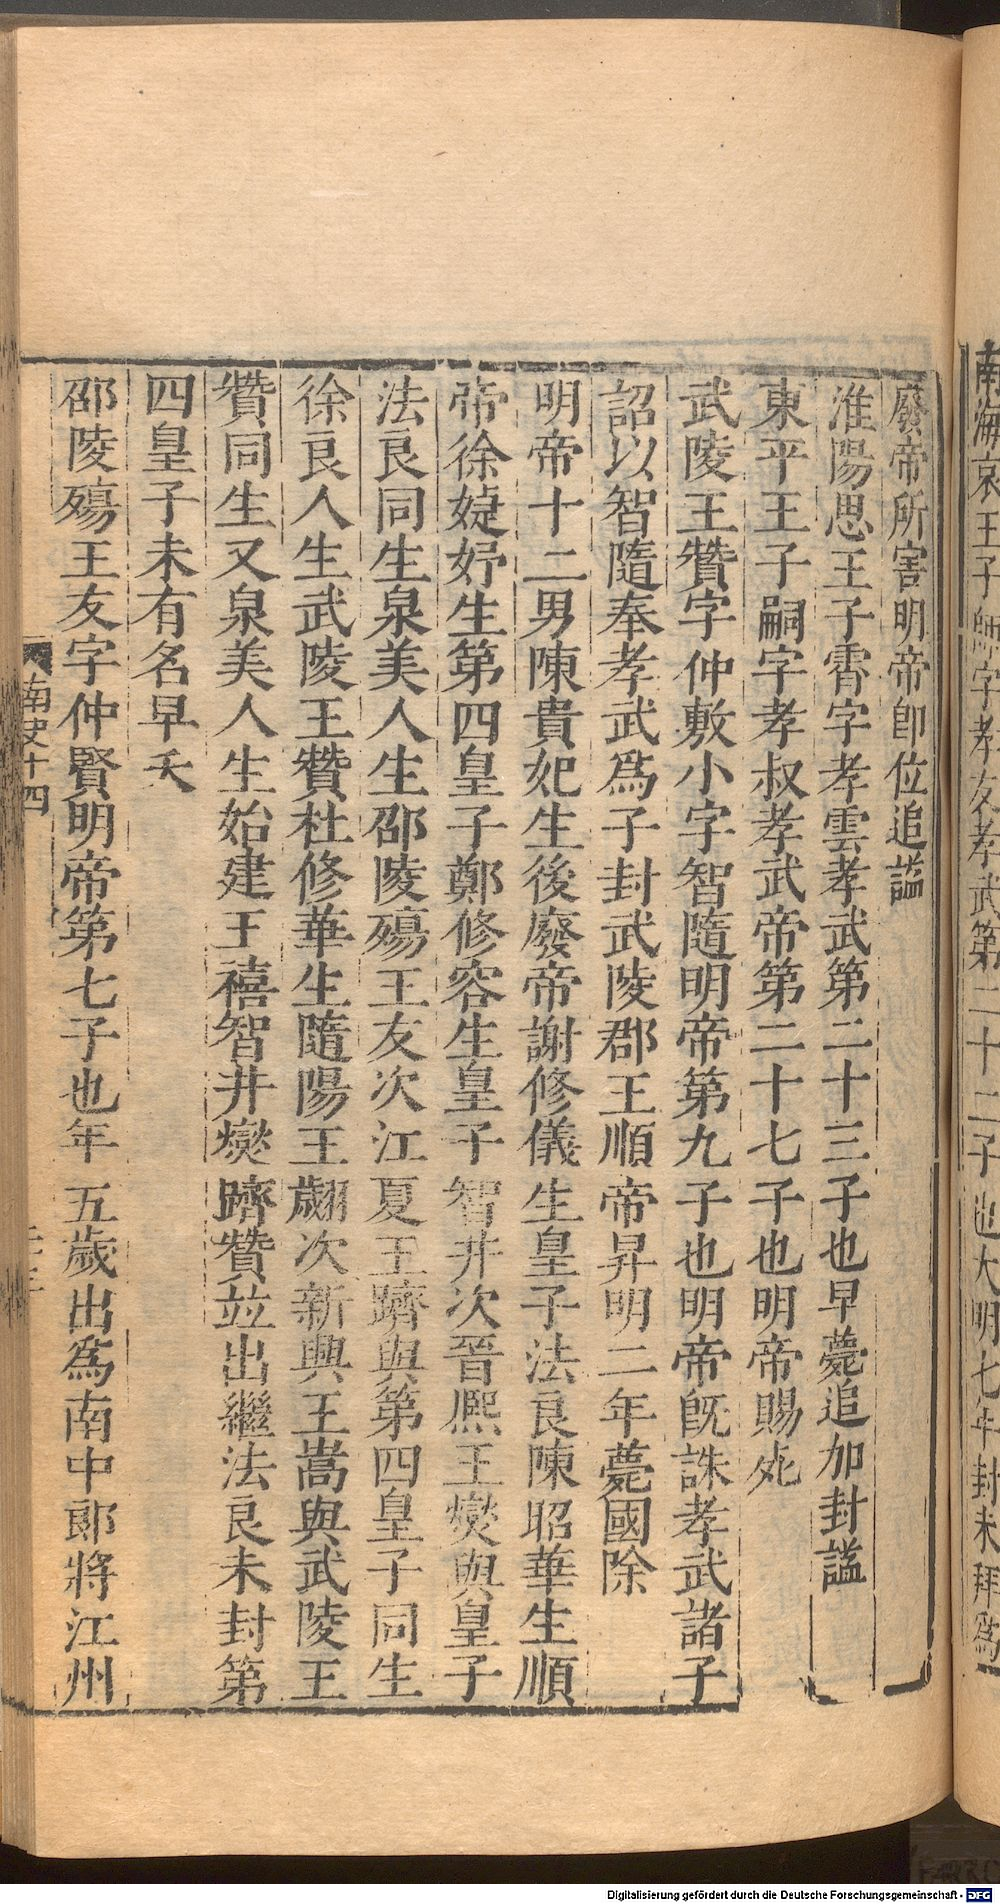 南海哀王子師字孝友孝武第二十二子也大明七年封未拜爲
廢帝所害明帝卽位追謚
淮陽思王子霄字孝雲孝武第二十三子也早薨追加封謚
東平王子嗣字孝叔孝武帝第二十七子也明帝賜死
武陵王贊字仲敷小字智隨明帝第九子也明帝旣誅孝武諸子
詔以智隨奉孝武爲子封武陵郡王順帝昇明二年薨國除
明帝十二男陳貴妃生後廢帝謝修儀生皇子法良陳昭華生順
帝徐婕妤生第四皇子鄭修容生皇子智井次晉熙王燮與皇子
法良同生泉美人生邵陵殤王友次江夏王躋與第四皇子同生
徐良人生武陵王贊杜修華生隨陽王翽次新興王嵩與武陵王
贊同生又泉美人生始建王禧智井燮躋贊並出繼法良未封第
四皇子未有名早夭
邵陵殤王友字仲賢明帝第七子也年五歲出爲南中郞將江州
南史十四
Digitalisierung gefördert durch die Deutsche Forschungsgemeinschaft - DFG